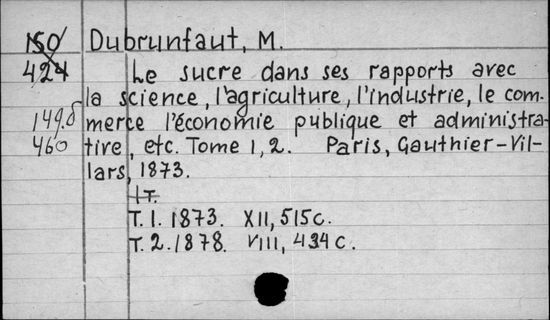 150 Dubrunfaut, M.
424 Le sucre dans ses rapports avec
la science, l'agriculture, l'industrie, le com-
1498 merce l'économie publique et administra-
460 tive, etc. Tome 1, 2. Paris, Gauthier-Vil-
lars, 1873.
1т.
Т. 1. 1873. XII, 515 с.
Т. 2. 1878. VIII, 434 с.